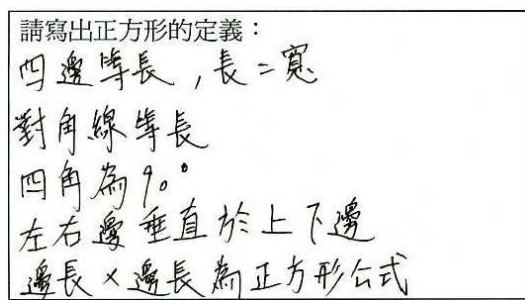 請寫出正方形的定義：
四邊等長，長=寬
對角線等長
四角為90°
左右邊垂直於上下邊
邊長×邊長為正方形公式